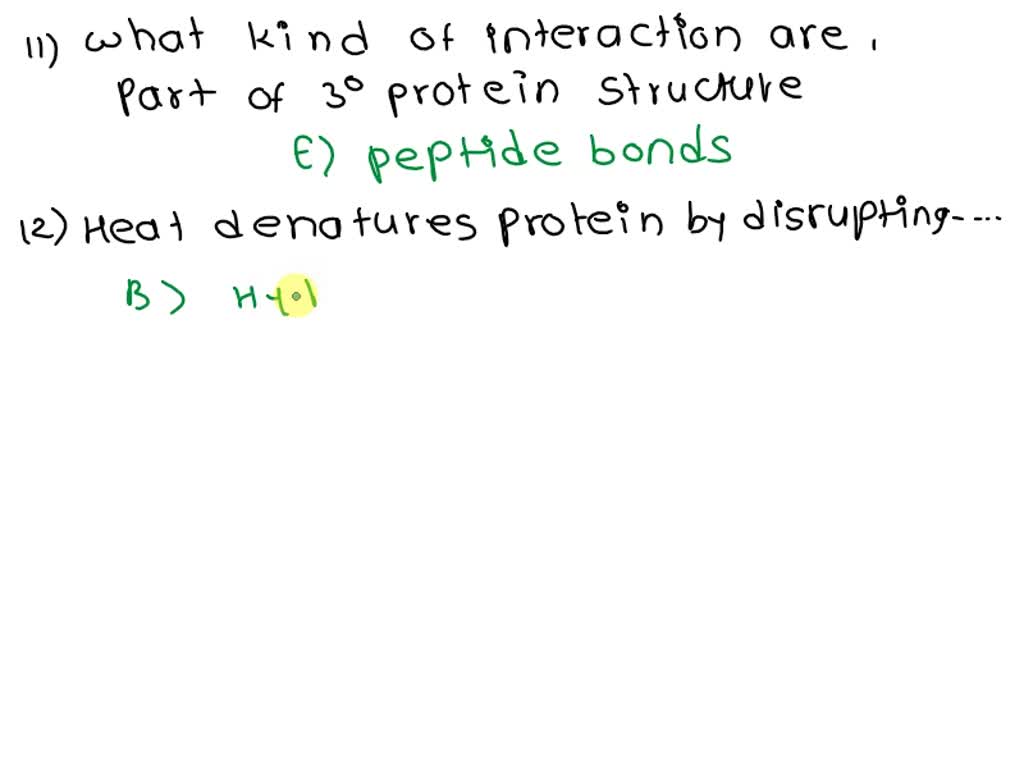 11) what kind of interaction are,
Part of 3° protein structure
E) peptide bonds
12) Heat denatures protein by disrupting-....
B> H